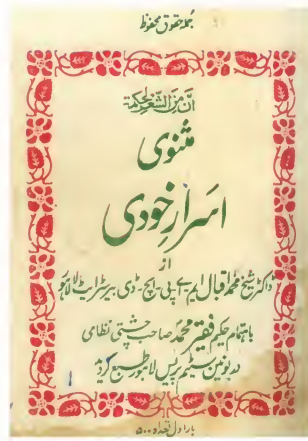 جملہ حقوق محفوظ
اِنَّ مِنَ الشِّعْرِ لَحِكْمَۃ
مثنوی
اسرارِ خودی
از
ڈاکٹر شیخ محمد اقبال ایم-اے-پی-ایچ-ڈی بیرسٹر ایٹ لا لاہور
باہتمام حکیم فقیر محمد صاحب چشتی نظامی
در یونین سٹیم پریس لاہور طبع گردید
بار اول تعداد ۵۰۰